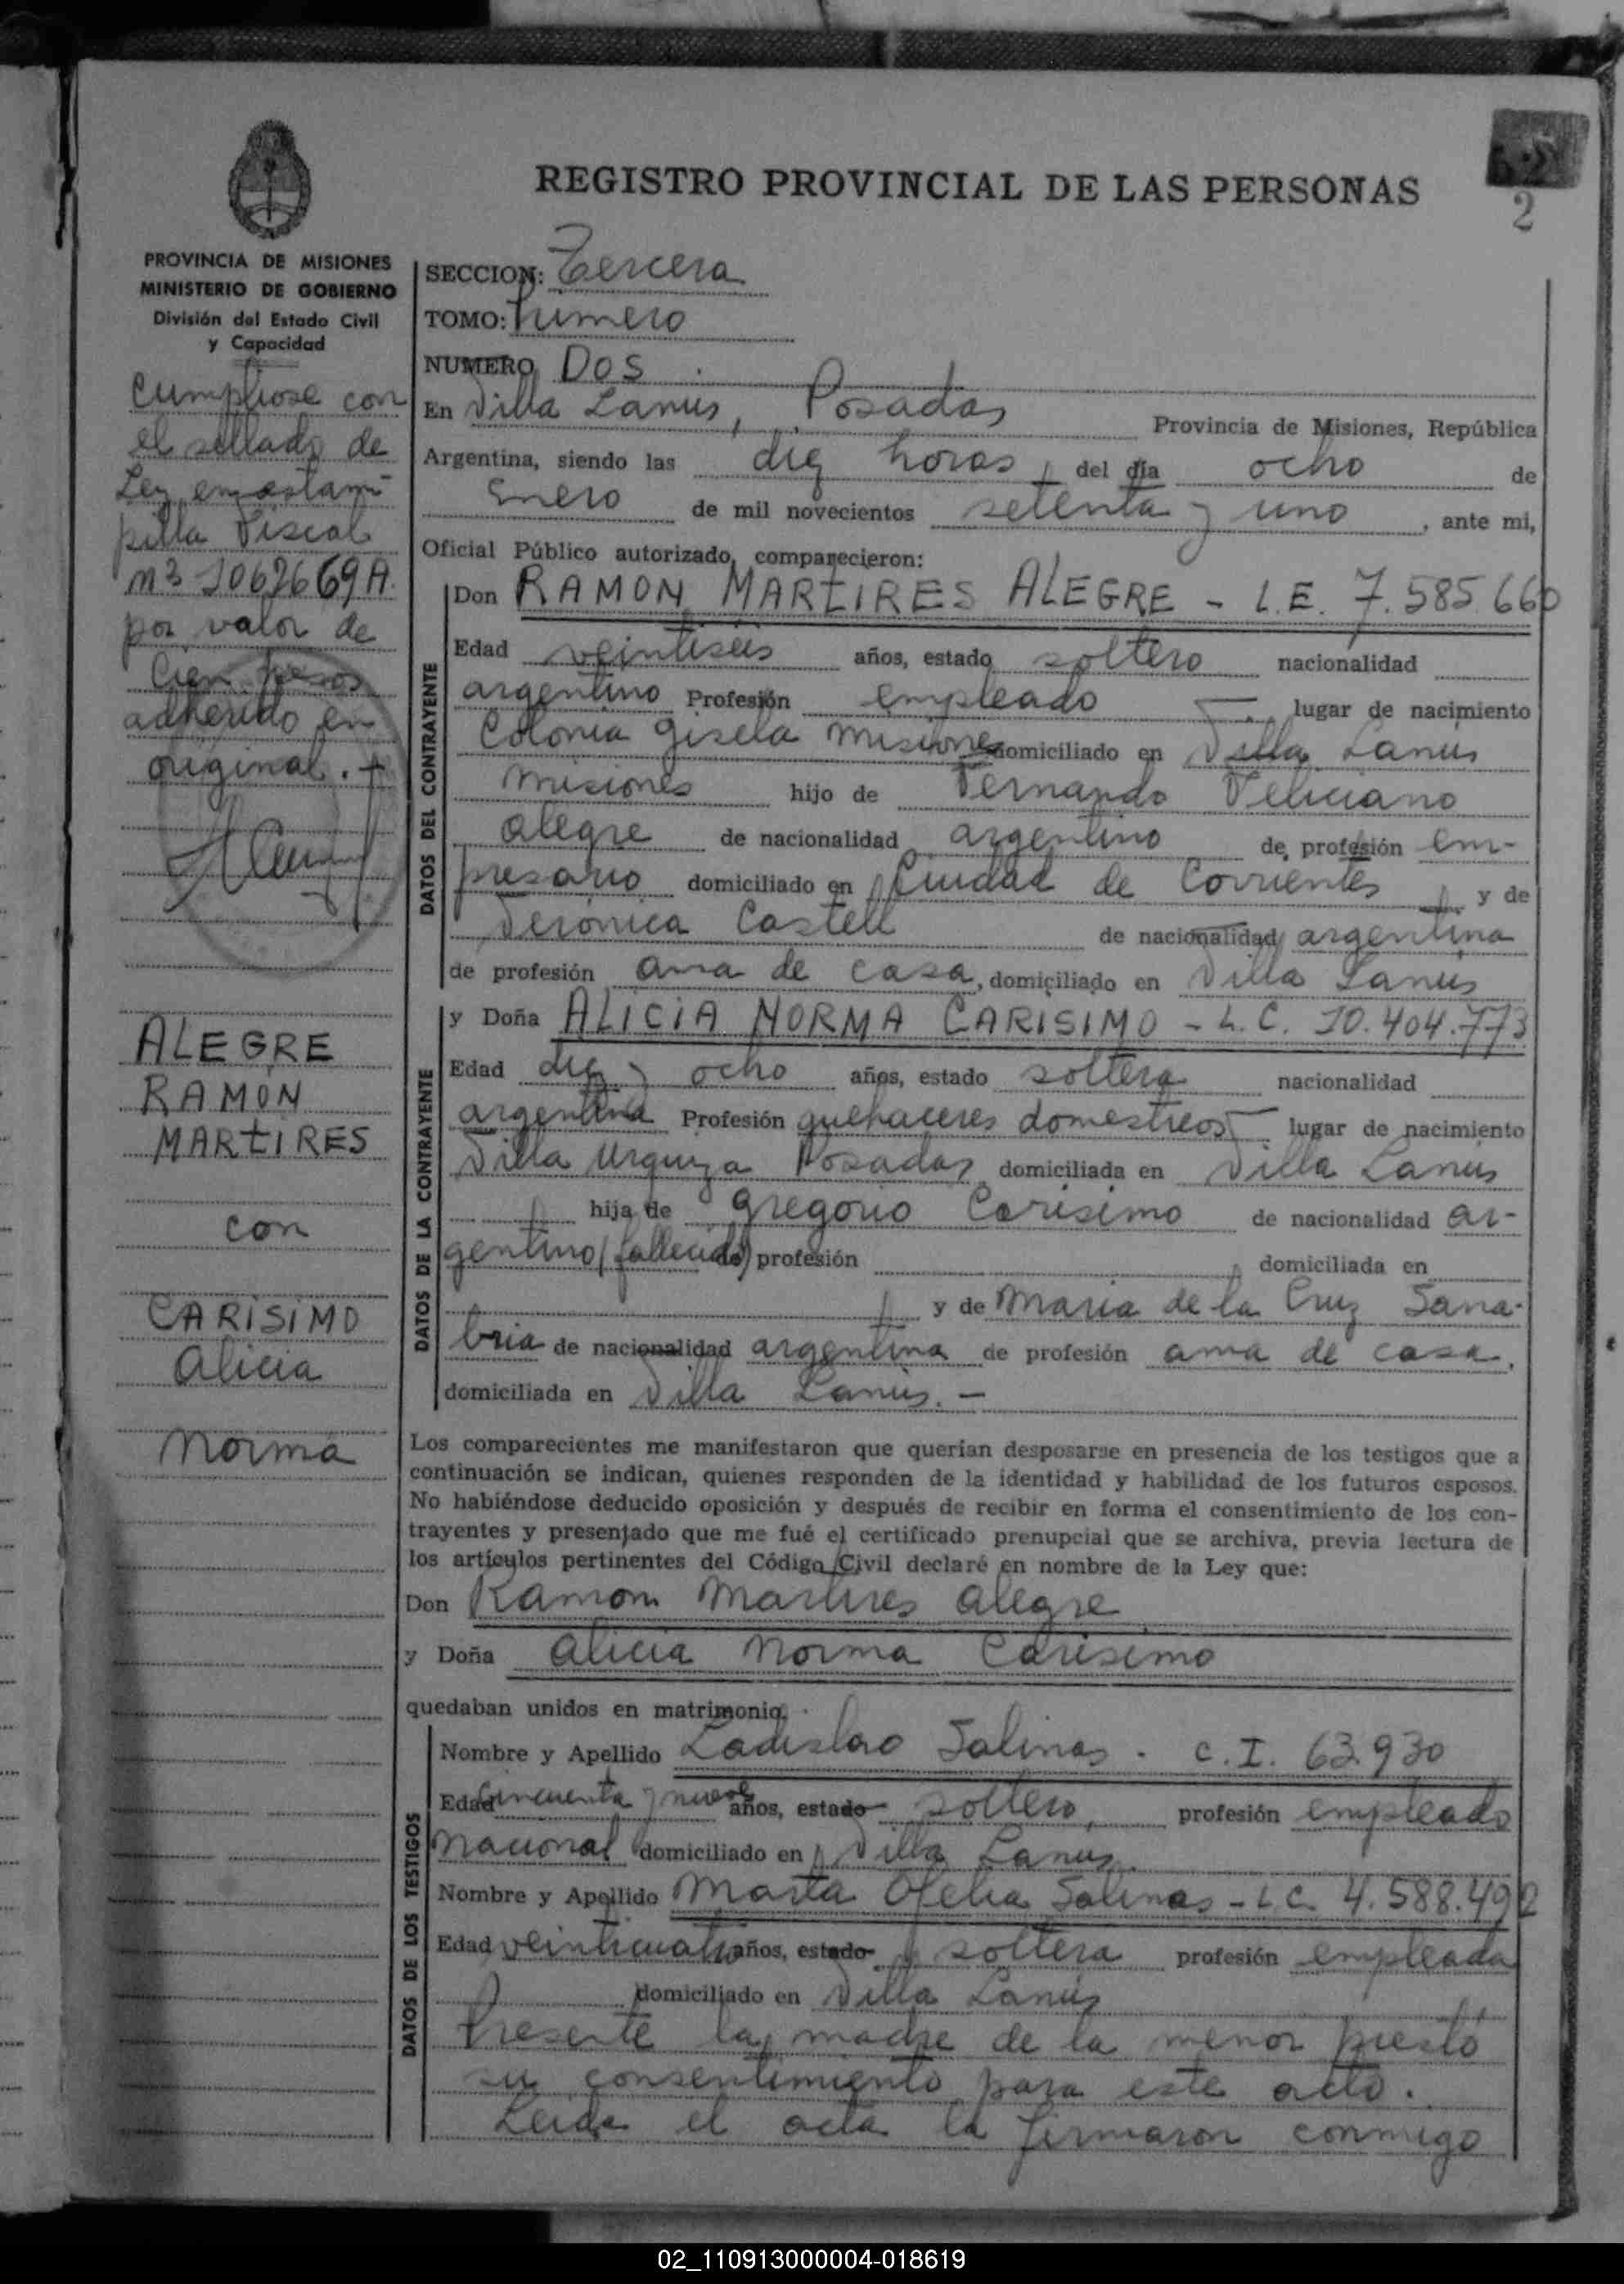 REGISTRO PROVINCIAL DE LAS PERSONAS
2
PROVINCIA DE MISIONES
MINISTERIO DE GOBIERNO
División del Estado Civil
y Capacidad
Cumpliose con
el sellado de
Ley en estam
pilla Fiscal
nº 1062669A.
por valor de
Cien pesos
adherido en
original.
ALEGRE
RAMÓN
MARTIRES
con
CARISIMO
Alicia
Norma
SECCION: Tercera
TOMO: Primero
NUMERO DOS
En Villa Lanus, Posadas Provincia de Misiones, República
Argentina, siendo las diez horas, del día ocho de
Enero de mil novecientos setenta y uno, ante mi,
Oficial Público autorizado, comparecieron:
DATOS DEL CONTRAYENTE
Don RAMON MARTIRES ALEGRE - L.E. 7.585.660
Edad veintiseis años, estado soltero nacionalidad
argentino Profesión empleado lugar de nacimiento
Colonia Gisela Misiones domiciliado en Villa Lanus
Misiones hijo de Fernando Feliciano
Alegre de nacionalidad argentino de profesión em-
presario domiciliado en Ciudad de Corrientes y de
Verónica Castell de nacionalidad argentina
de profesión ama de casa, domiciliado en Villa Lanús
DATOS DE LA CONTRAYENTE
y Doña ALICIA NORMA CARISIMO - L.C. 10.404.773
Edad diez y ocho años, estado soltera nacionalidad
argentina Profesión quehaceres domesticos lugar de nacimiento
Villa Urquiza Posadas domiciliada en Villa Lanús
hija de Gregorio Carisimo de nacionalidad ar-
gentino (fallecido) profesión domiciliada en
y de Maria de la Cruz Sana-
bria de nacionalidad argentina de profesión ama de casa,
domiciliada en Villa Lanús.-
Los comparecientes me manifestaron que querían desposarse en presencia de los testigos que a
continuación se indican, quienes responden de la identidad y habilidad de los futuros esposos.
No habiéndose deducido oposición y después de recibir en forma el consentimiento de los con-
trayentes y presentado que me fué el certificado prenupcial que se archiva, previa lectura de
los artículos pertinentes del Código Civil declaré en nombre de la Ley que:
Don Ramon Martires Alegre
y Doña Alicia Norma Carisimo
quedaban unidos en matrimonio.
DATOS DE LOS TESTIGOS
Nombre y Apellido Ladislao Salinas. C.I. 63.930
Edad Cincuenta y nueve años, estado soltero, profesión empleado
nacional domiciliado en Villa Lanus.
Nombre y Apellido Marta Ofelia Salinas - L.C. 4.588.492
Edad veinticuatro años, estado soltera profesión empleada
domiciliado en Villa Lanús
Presente la madre de la menor prestó
su consentimiento para este acto.
Leida el acta la firmaron conmigo
02_110913000004-018619